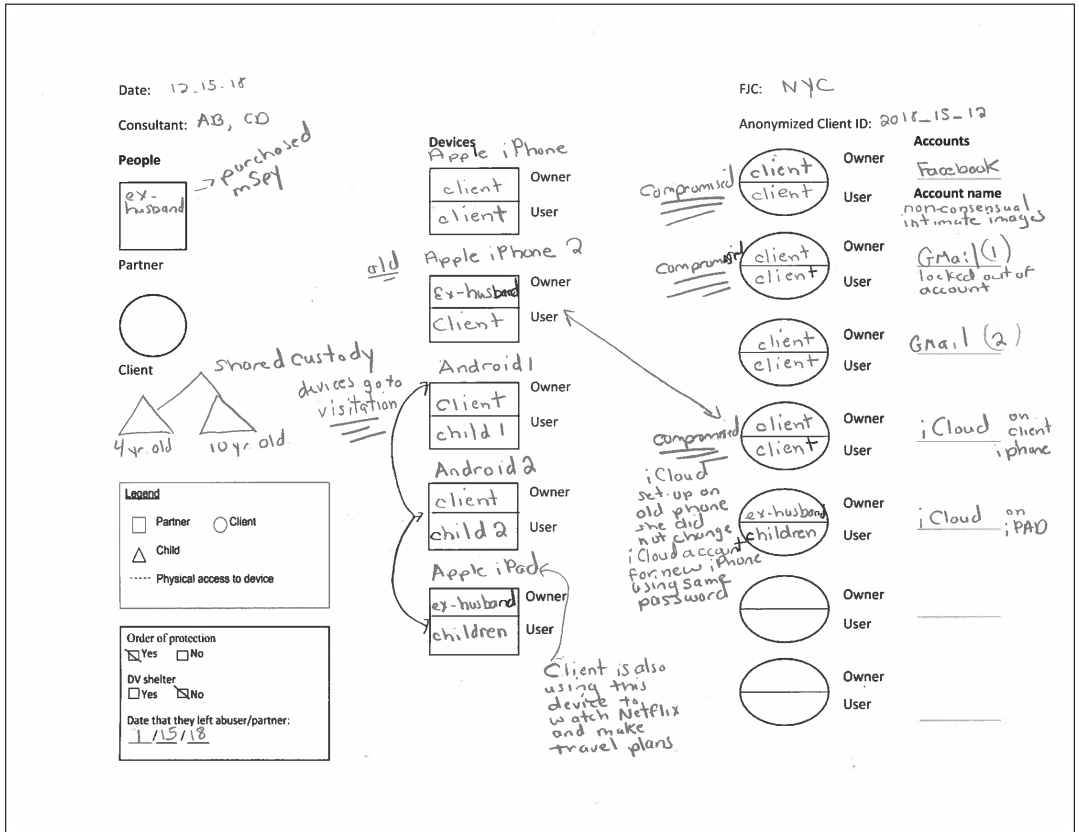 Date: 12.15.18
Consultant: AB, CD
FJC: NYC
Anonymized Client ID: 2018_15_12
People
ex-
husband
→ purchased
mSpy
Partner
Client
shared custody
4 yr. old
10 yr. old
devices go to
visitation
Legend
Partner
Client
Child
----- Physical access to device
Order of protection
Yes
No
DV shelter
Yes
No
Date that they left abuser/partner:
1/15/18
Devices
Apple iPhone
client
Owner
client
User
old
Apple iPhone 2
Ex-husband
Owner
Client
User
Android 1
Client
Owner
child 1
User
Android 2
client
Owner
child 2
User
Apple iPad
ex-husband
Owner
children
User
Client is also
using this
device to
watch Netflix
and make
travel plans
Accounts
Compromised
client
Owner
client
User
Facebook
Account name
non-consensual
intimate images
Compromised
client
Owner
client
User
GMail (1)
locked out of
account
client
Owner
client
User
GMail (2)
compromised
client
Owner
client
User
iCloud on
client
iphone
iCloud
set-up on
old phone
she did
not change
iCloud account
for new iPhone
using same
password
ex-husband
Owner
children
User
iCloud on
iPAD
Owner
User
Owner
User